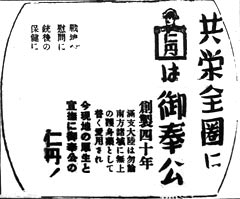 共栄全圏に
仁丹
は御奉公
創製四十年
満支大陸は勿論
南方諸域に無上
の護身薬として
普く愛用され
今現地の厚生と
宣撫に御奉公の
仁丹！
戦地の
慰問に
銃後の
保健に